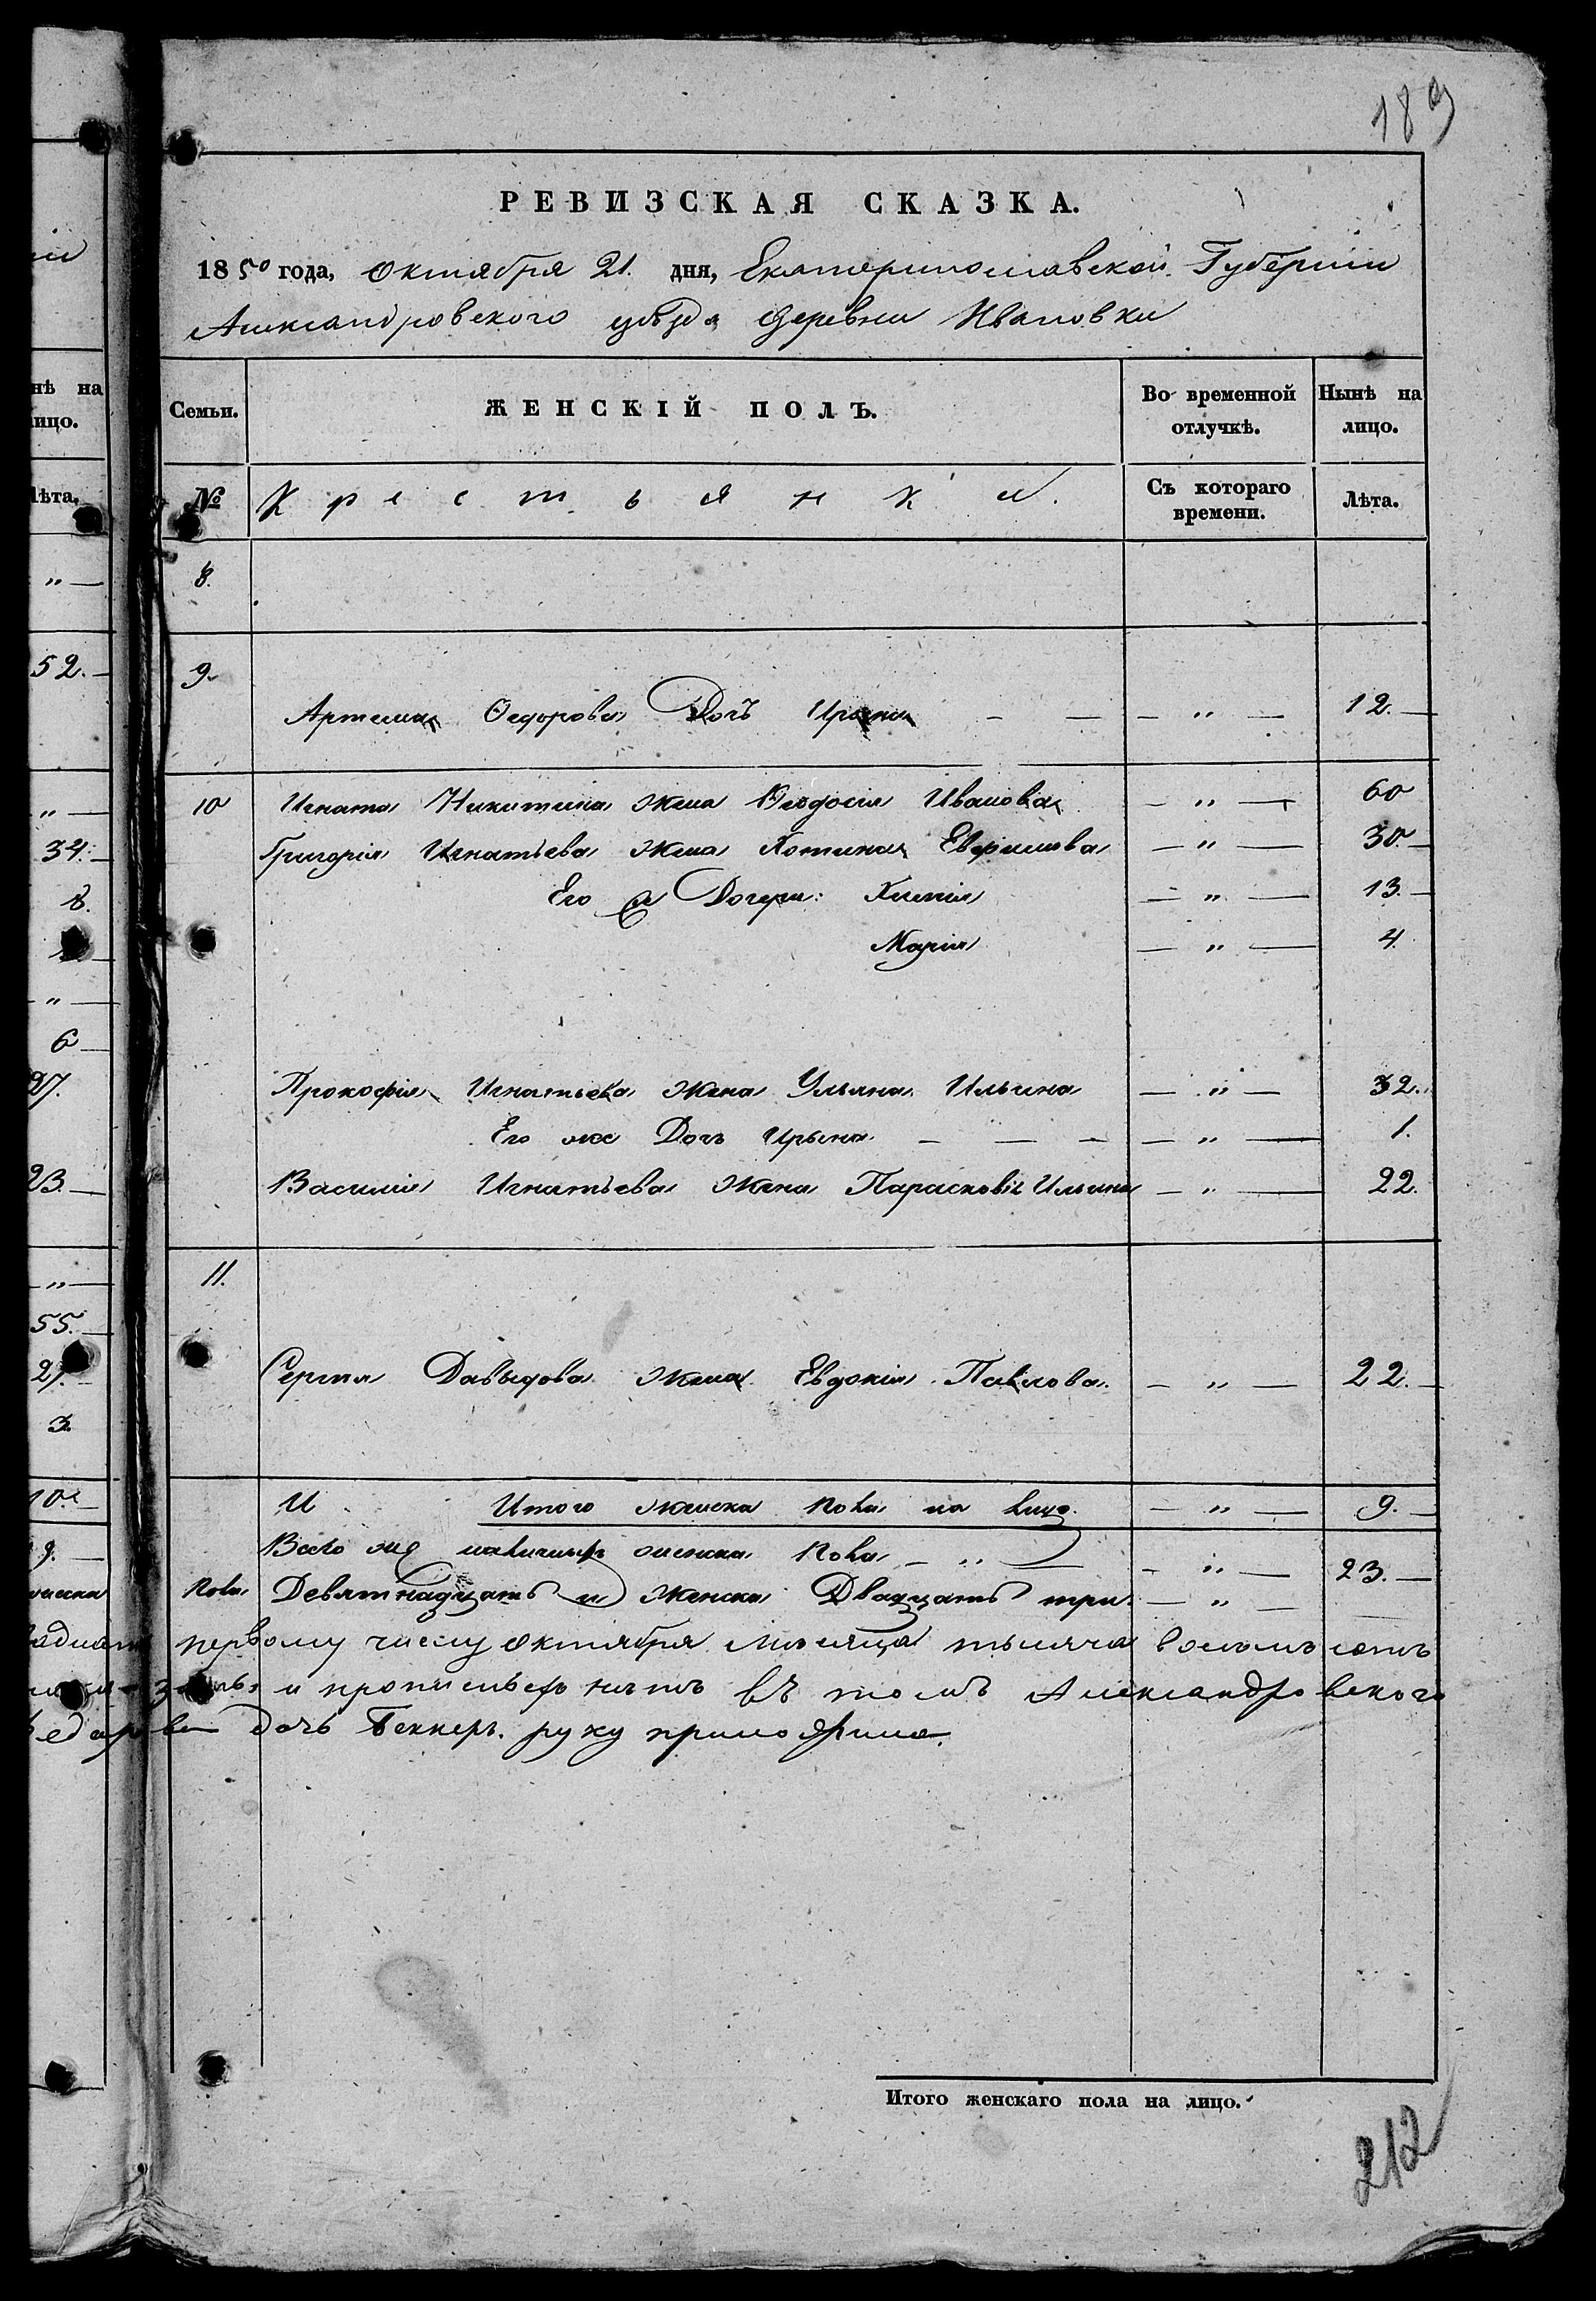 189
РЕВИЗСКАЯ СКАЗКА.
1850 года, октября 21. дня, Екатеринославской Губерніи
Александровского уѣзда деревни Ивановки
Семьи. ЖЕНСКІЙ ПОЛЪ. Во временной отлучкѣ. Нынѣ на лицо.
№ Крестьянки. Съ котораго времени. Лѣта.
8.
9.
Артема Федорова Дочь Ирына — — — „ — 12. —
10 Игната Никитина жена Феодосія Иванова — „ — 60
Григорія Игнатьева жена Хотина — „ — 30 —
Его же Дочери: Ксенія — „ — 13. —
Марія — „ — 4.
Прокофія Игнатьева жена Ульяна Ильина — „ — 32.
Его же Дочь Ирына. — — — — „ — 1.
Василія Игнатьева жена Парасковія Ильина — „ — 22.
11.
Сергія Давыдова жена Евдокія Павлова. — „ — 22. —
И Итого женска пола на лицо. — „ — 9. —
Всего же наличныхъ женска пола — „ — — „ — 23. —
пола Девятнадцать и женска Двадцать три. — „ —
первому числу октября месяца тысяча восемь сотъ
и прописныхъ нетъ въ томъ Александровского
дочь Беккеръ. руку приложила.
Итого женскаго пола на лицо.
212
нѣ на
лицо.
Лѣта.
„ —
52. —
„ —
34. —
8.
„ —
6 —
27.
23. —
„ —
55. —
27. —
3.
10. —
9. —